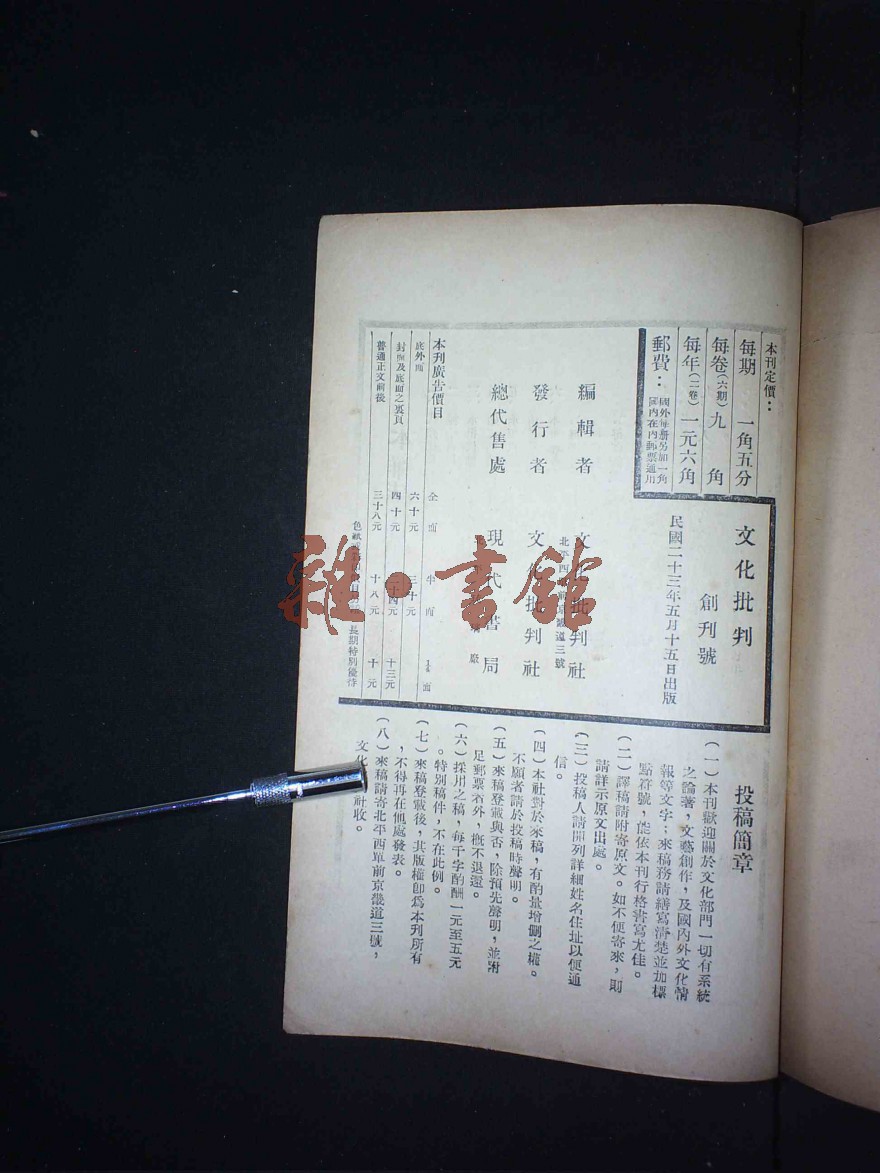 本刊定價：
每期　一角五分
每卷（六期）九　角
每年（二卷）一元六角
郵費：
國外每册另加一角
國內在內郵票通用
文化批判
創刊號
民國二十三年五月十五日出版
編輯者　文化批判社
發行者　文化批判社
總代售處　現代書局
本刊廣告價目
全面　半面　¼面
底外面　六十元　三十元
封面及底面之裏頁　四十元　二十四元　十三元
普通正文前後　三十八元　十八元　十元
長期特別優待
投稿簡章
（一）本刊歡迎關於文化部門一切有系統
之論著，文藝創作，及國內外文化情
報等文字；來稿務請繕寫清楚並加標
點符號，能依本刊行格書寫尤佳。
（二）譯稿請附寄原文。如不便寄來，則
請詳示原文出處。
（三）投稿人請開列詳細姓名住址以便通
信。
（四）本社對於來稿，有酌量增刪之權。
不願者請於投稿時聲明。
（五）來稿登載與否，除預先聲明，並附
足郵票者外，槪不退還。
（六）採用之稿，每千字酌酬一元至五元
。特別稿件，不在此例。
（七）來稿登載後，其版權卽爲本刊所有
，不得再在他處發表。
（八）來稿請寄北平西單前京畿道三號，
文化社收。
雜·書館